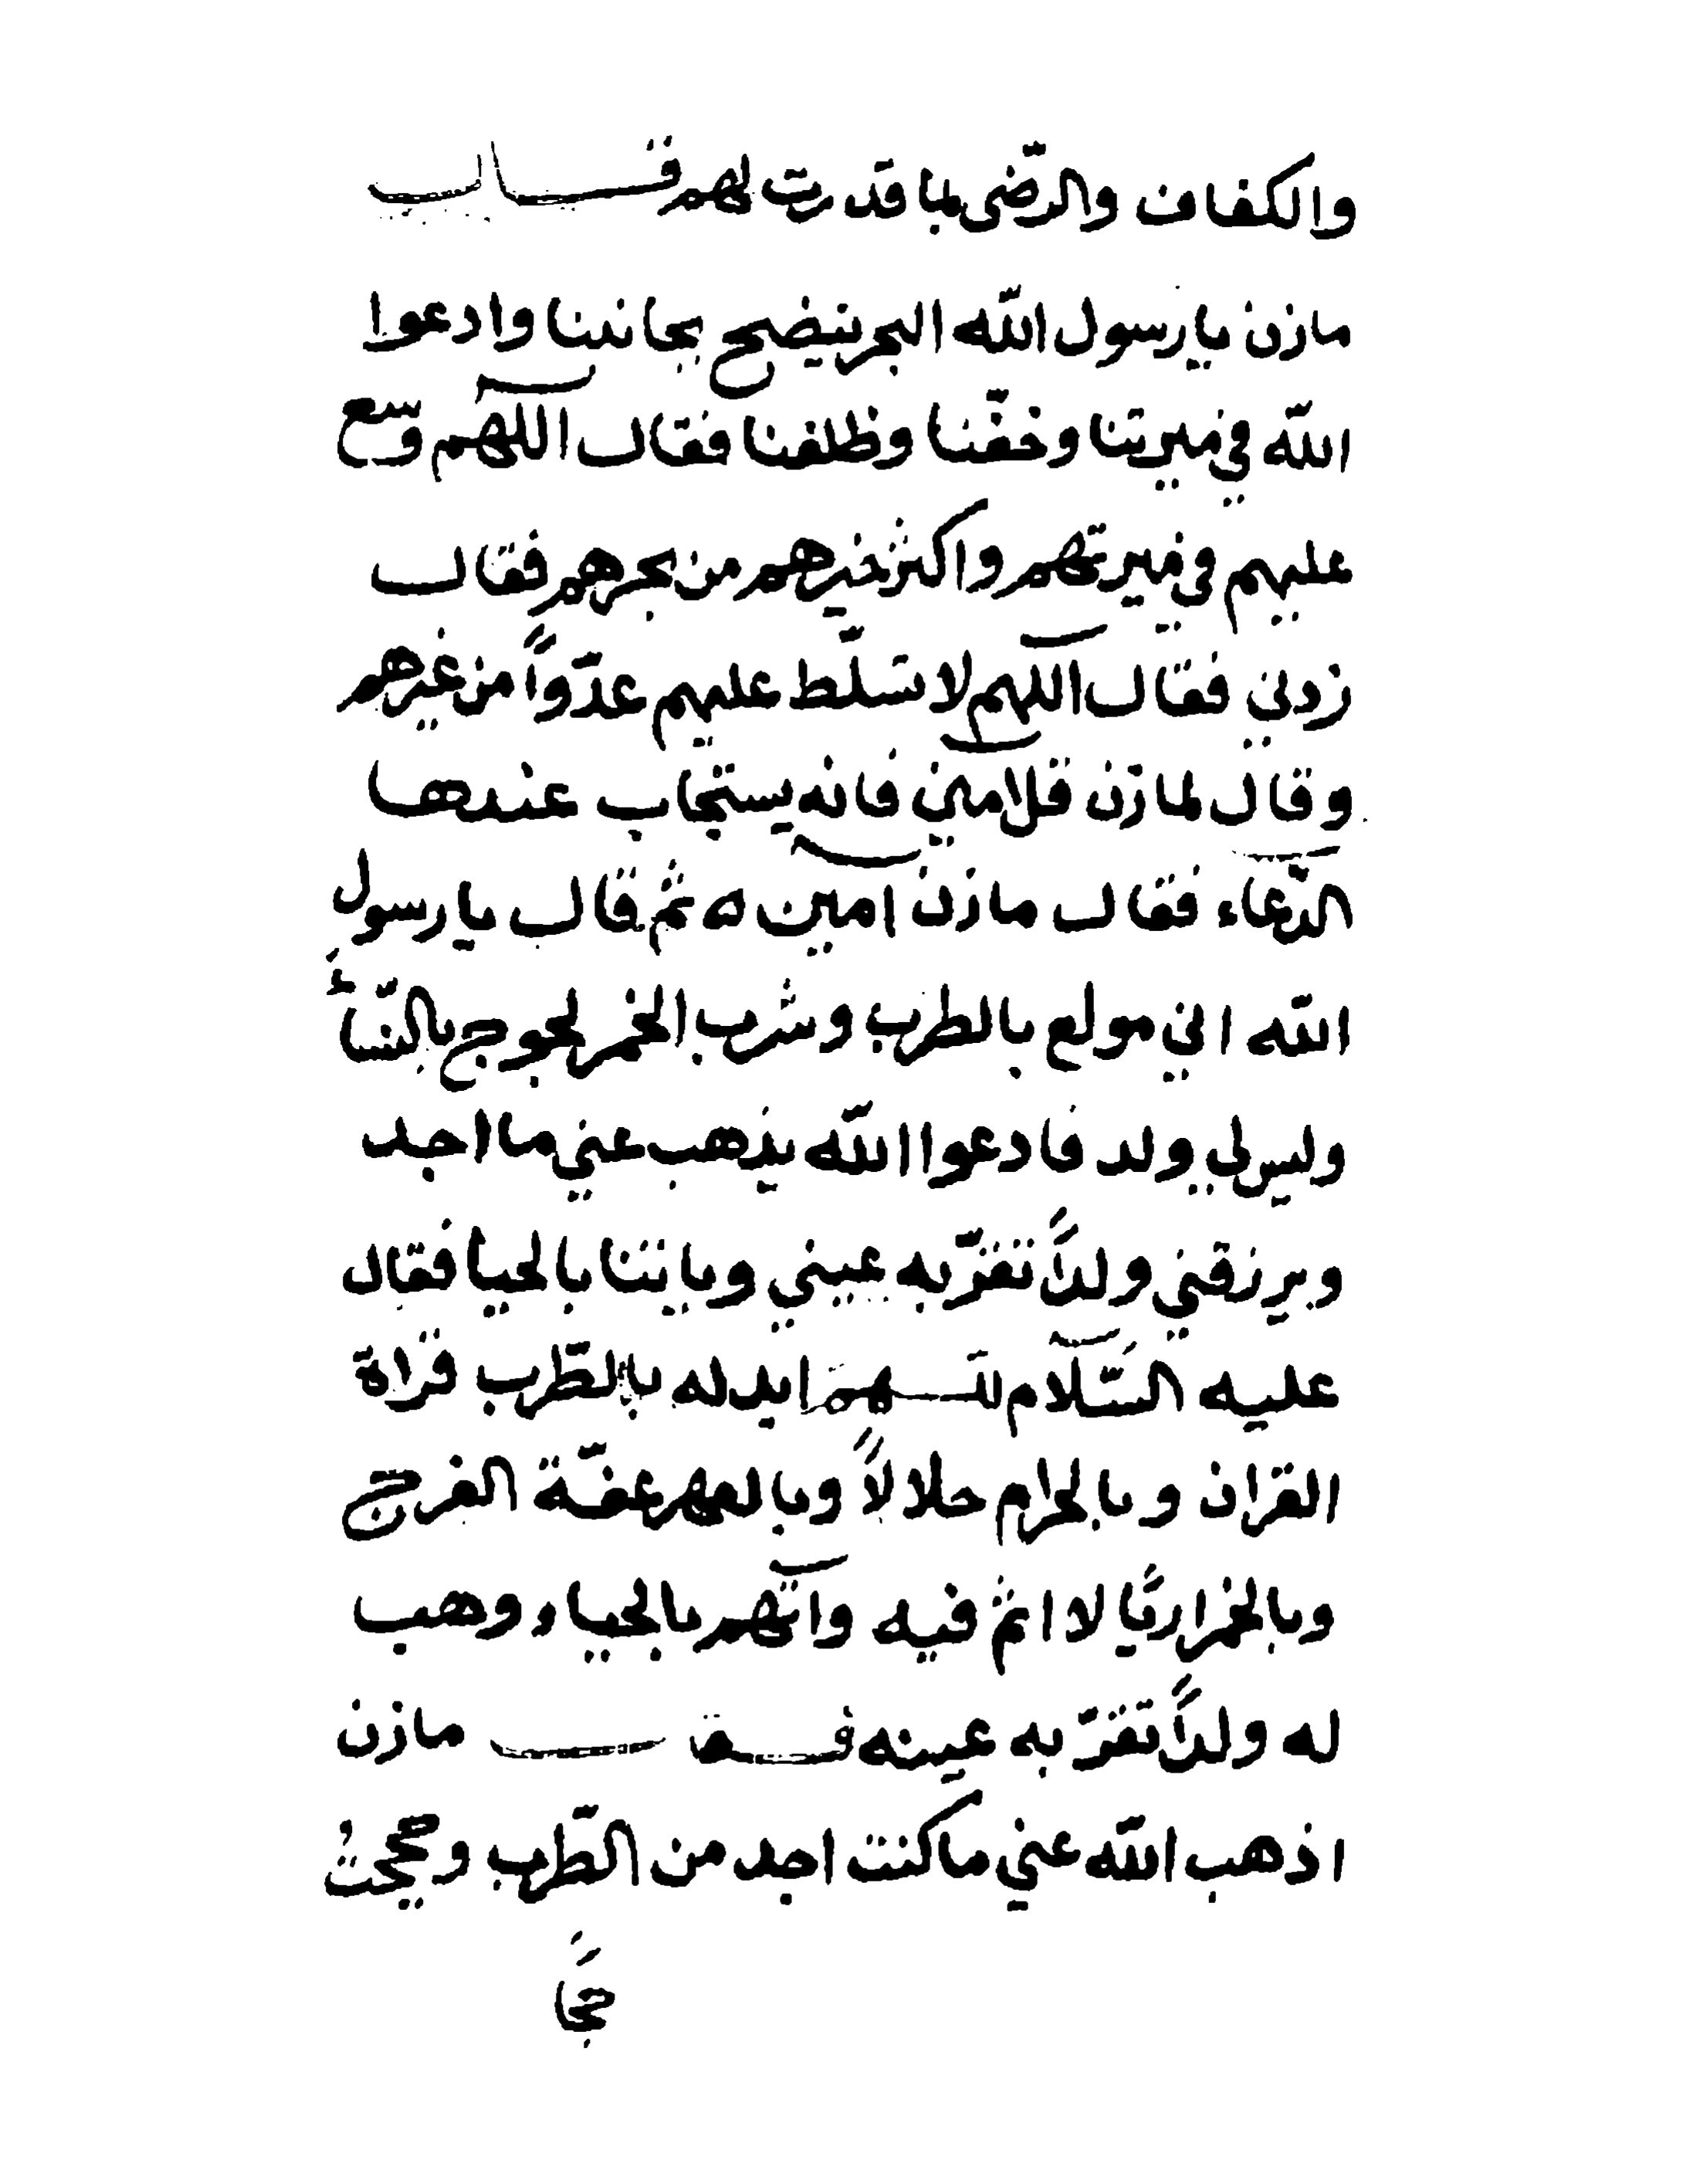 والكفاف والرّضى بما قدرت لهم قـــال
مازن يا رسول اللّه البحر ينضح بجانبنا وادعوا
اللّه في ميرتنا وخفّنا وظلفنا فقال اللّهم وسع
عليهم في ميرتهم واكثر خيرهم من بحرهم فقال
زدني فقال اللّهم لا تسلّط عليهم عدّواً من غيرهم
وقال لمازن قل امين فانه يستجاب عندها
الدّعاء فقال مازن امين ه ثم قال يا رسول
اللّه اني مولع بالطرب وشرب الخمر لجوج بالنّساءِ
وليس لي ولد فادعوا اللّه يذهب عني ما اجد
ويرزقني ولداً تقرّ به عيني وياتنا بالحيا فقال
عليه السّلام اللـهم ابدله بالطّرب قراة
القران وبالحرام حلالاً وبالعهر عفّة الفرج
وبالخمر اريًا لا اثم فيه واتهم بالحياء وهب
له ولداً تقرّ به عينه فـقـــال مازن
اذهب اللّه عني ما كنت اجد من الطّرب وحججتُ
حجّاً